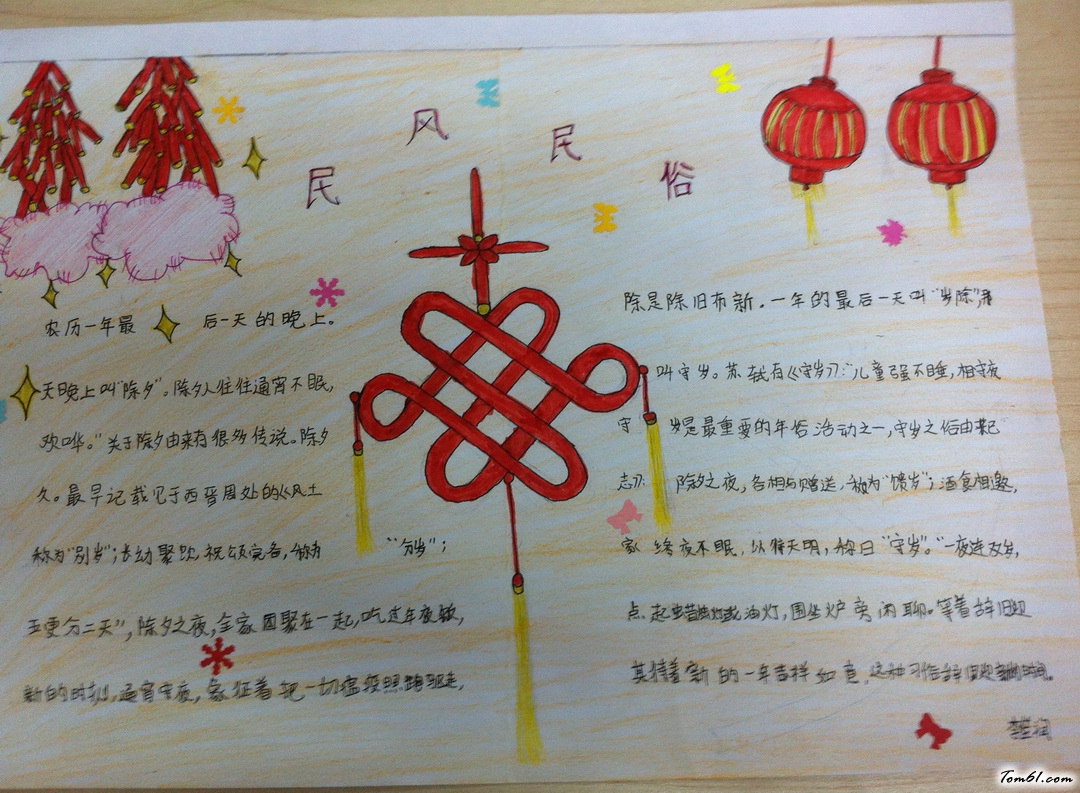 民风民俗
农历一年最后一天的晚上。除是除旧布新。一年的最后一天叫"岁除",那
天晚上叫"除夕"。除夕人往往通宵不眠,叫守岁。苏轼有《守岁》:"儿童强不睡,相守夜
欢哗。"关于除夕由来有很多传说。除夕守岁是最重要的年俗活动之一,守岁之俗由来已
久。最早记载见于西晋周处的《风土志》:除夕之夜,各相与赠送,称为"馈岁";酒食相邀,
称为"别岁";长幼聚饮,祝颂完备,称为"分岁";家终夜不眠,以待天明,称曰"守岁"。"一夜连双岁,
五更分二天",除夕之夜,全家团聚在一起,吃过年夜饭,点起蜡烛或油灯,围坐炉旁闲聊。等着辞旧迎
新的时刻,通宵守夜,象征着把一切瘟疫照跑驱走,着新的一年吉祥如意,这种习俗
Tom61.com